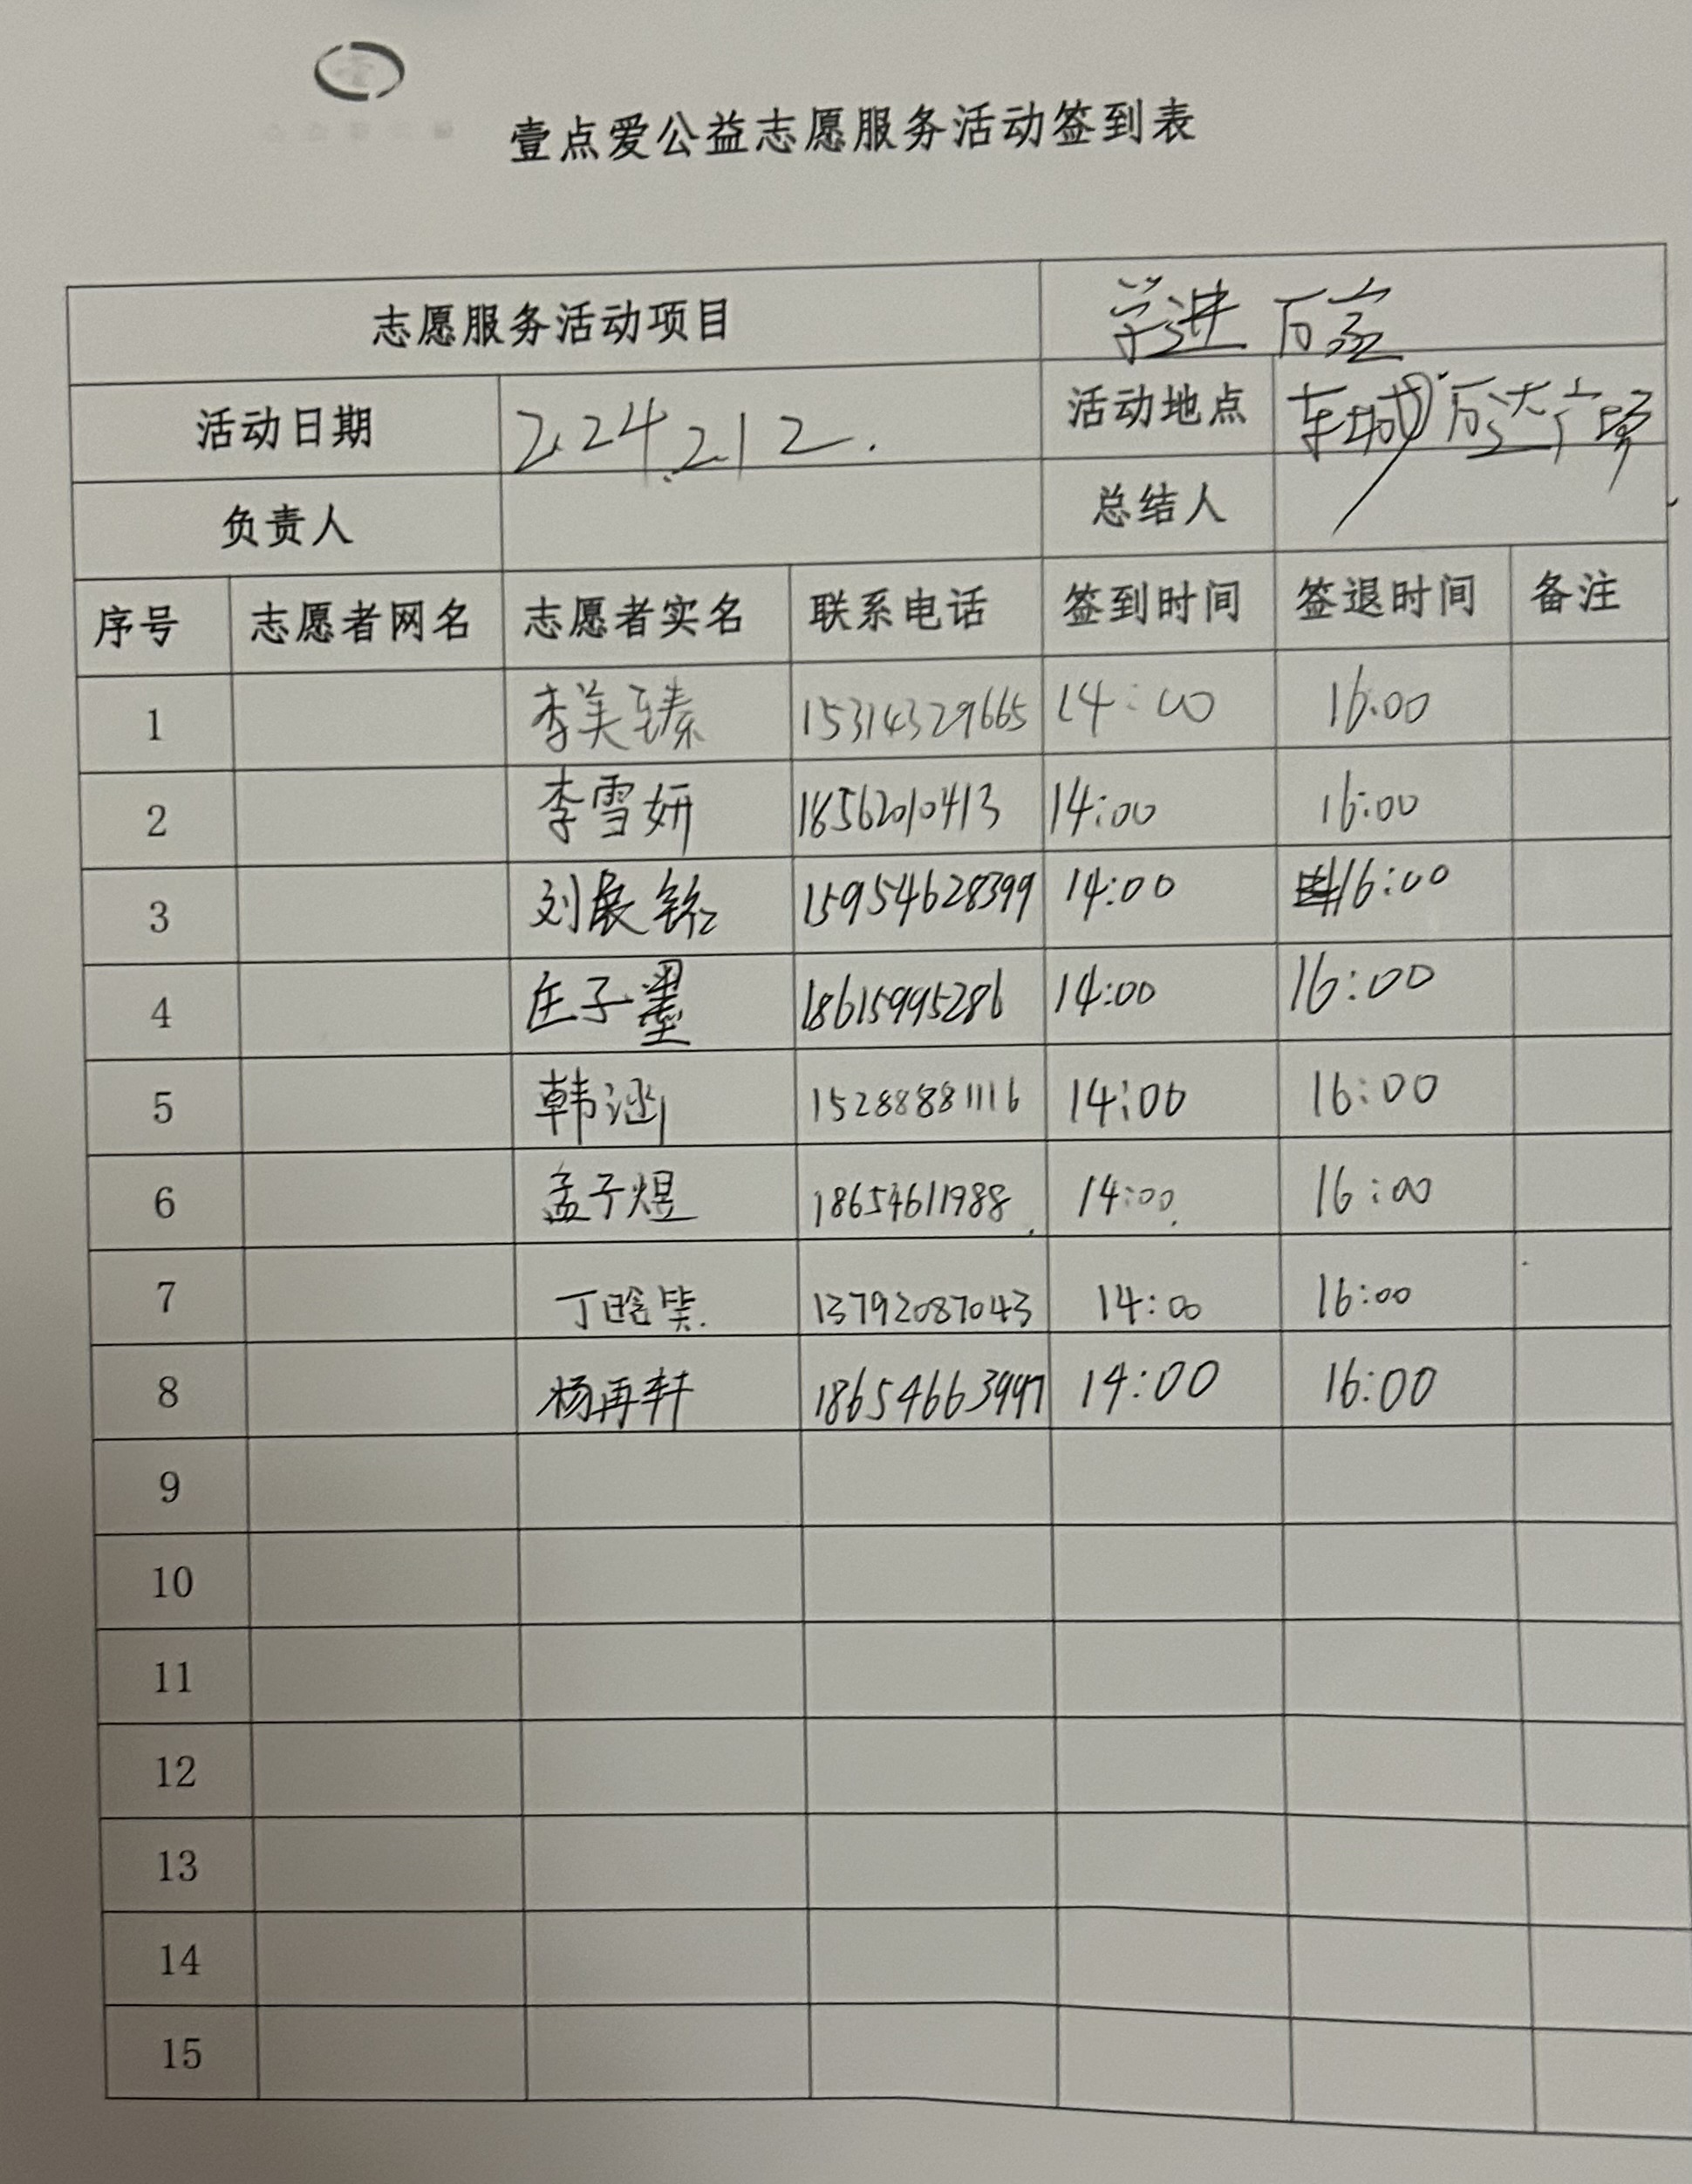 壹点爱公益志愿服务活动签到表
志愿服务活动项目 学进万家
活动日期 2.24.2.12. 活动地点 东城万达广场
负责人 总结人
序号 志愿者网名 志愿者实名 联系电话 签到时间 签退时间 备注
1 李美臻 15314329665 14:00 16:00
2 李雪妍 18562010413 14:00 16:00
3 刘展铭 15954628399 14:00 16:00
4 庄子墨 18615995286 14:00 16:00
5 韩涵 15288881116 14:00 16:00
6 孟子煜 18654611988 14:00 16:00
7 丁晗笑 13792087043 14:00 16:00
8 杨再轩 18654663997 14:00 16:00
9
10
11
12
13
14
15